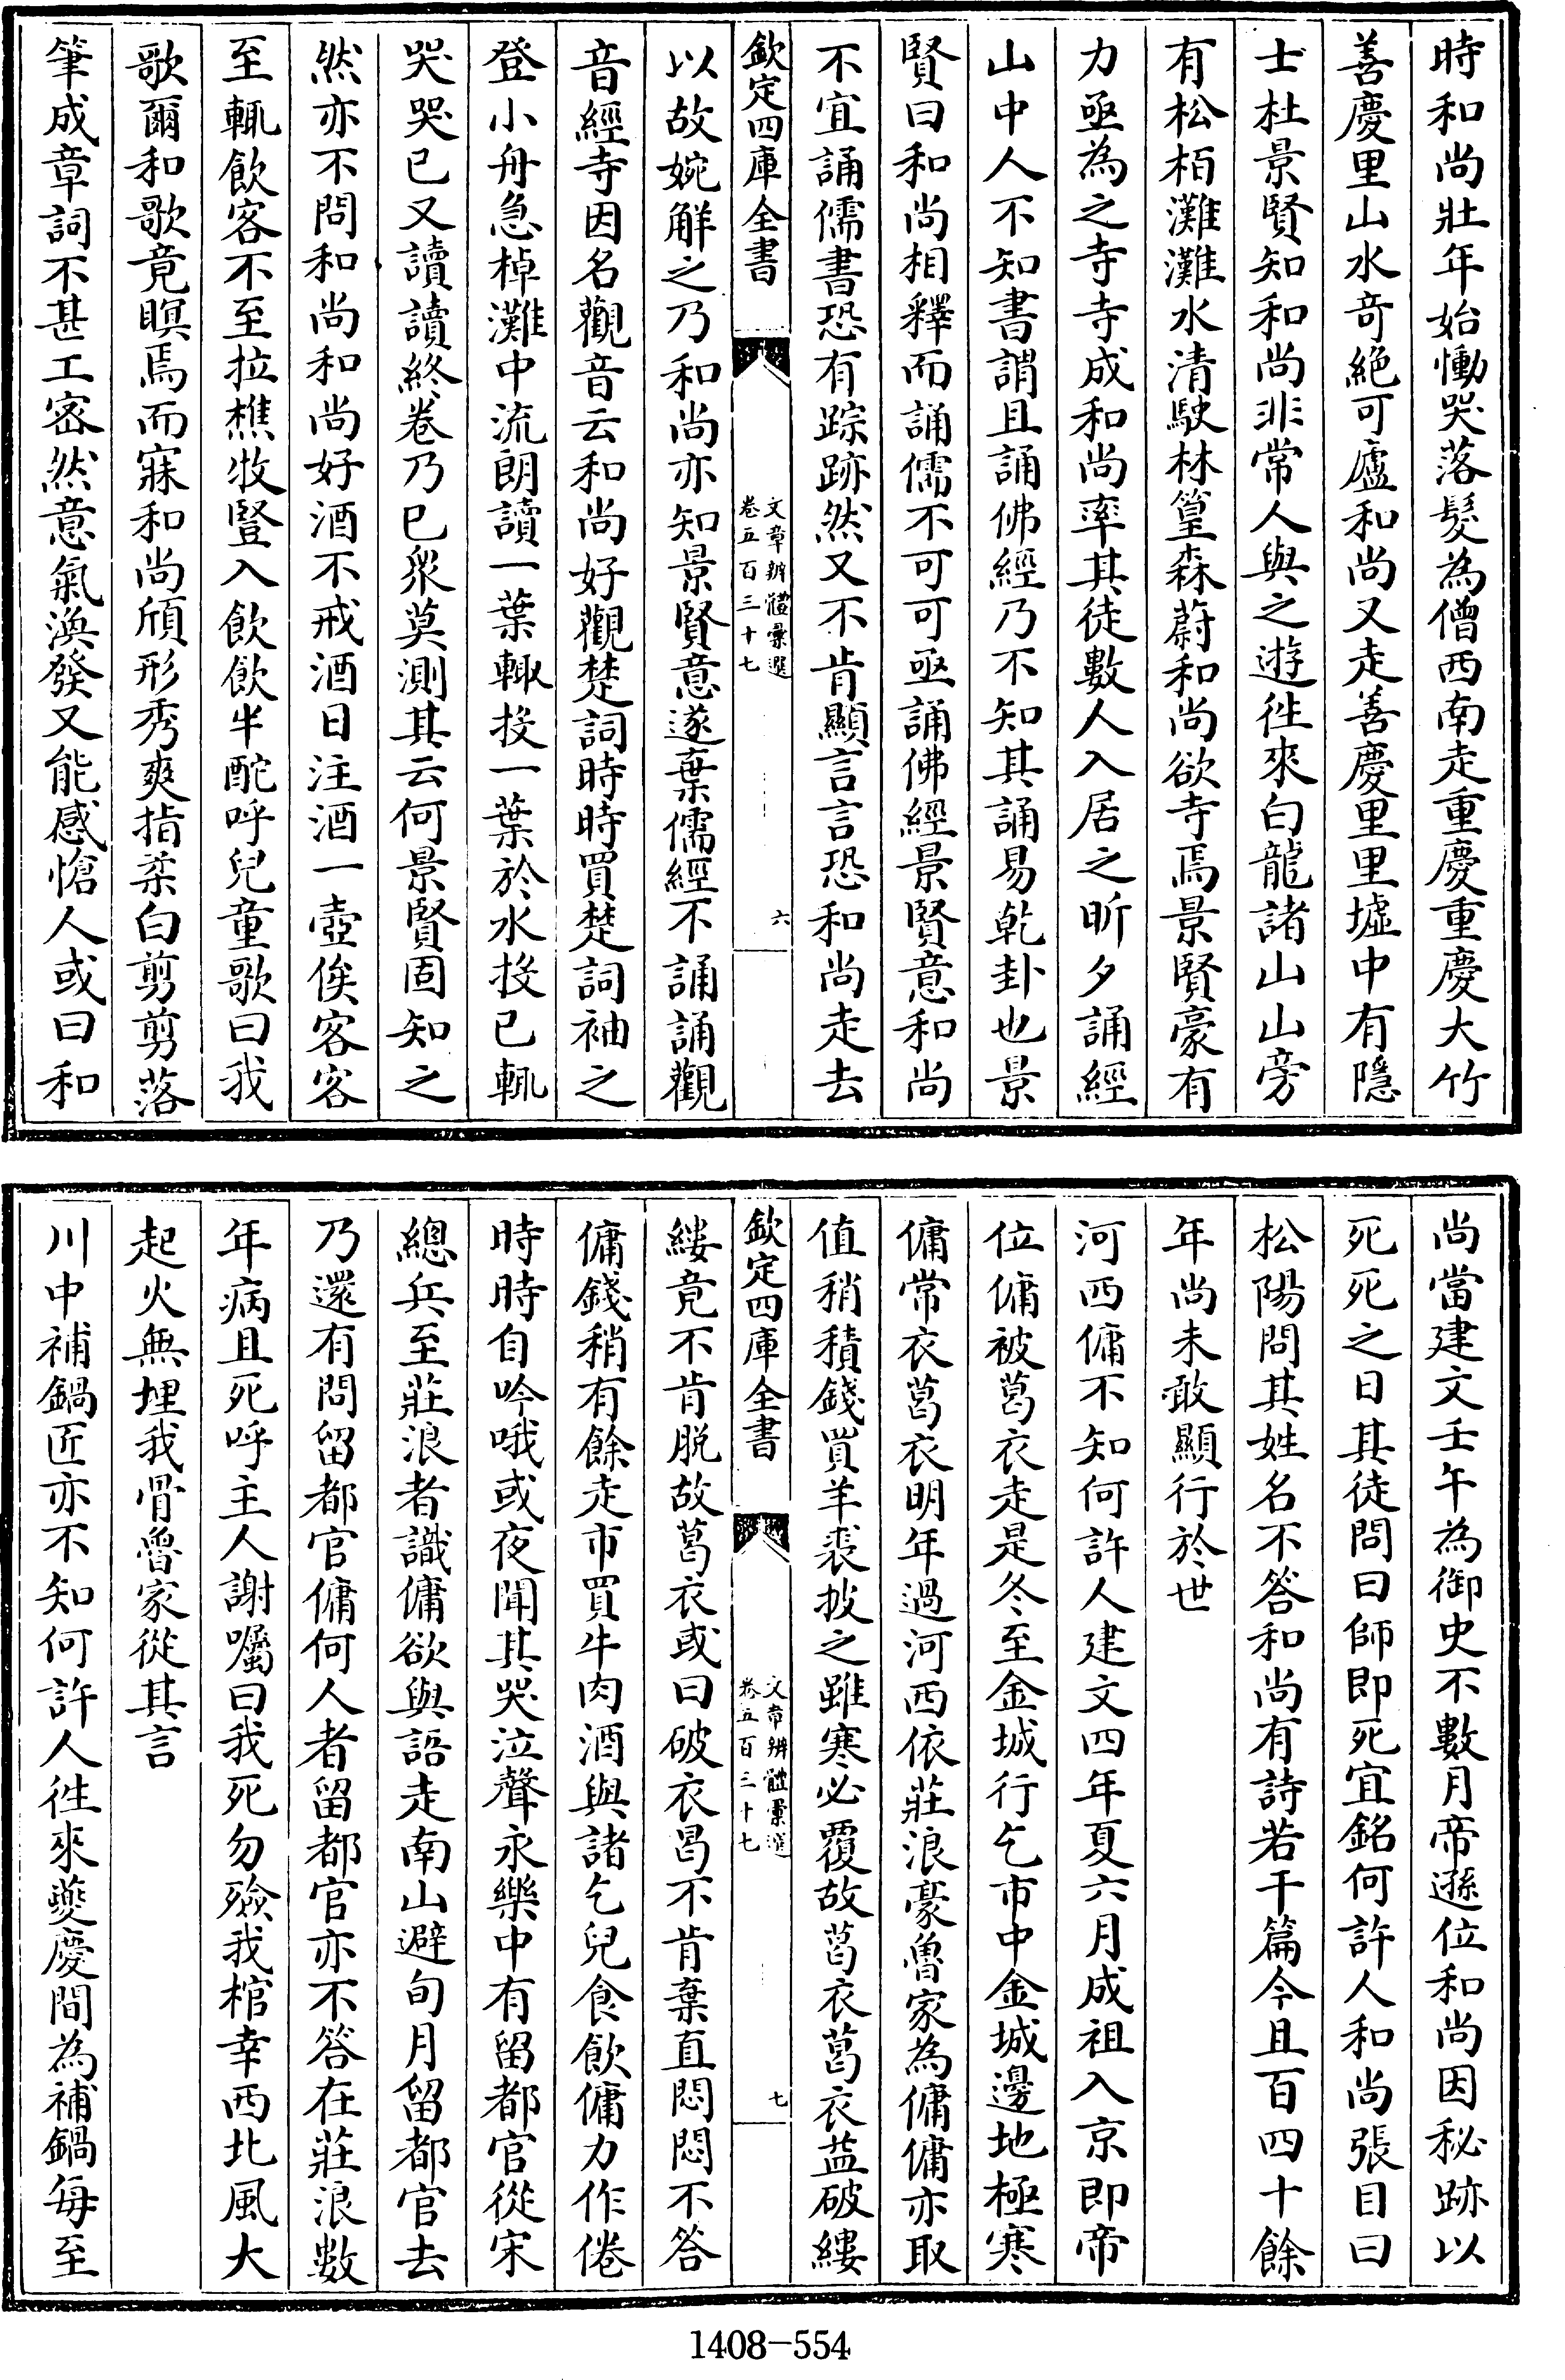 時和尚壯年始慟哭落髮為僧西南走重慶重慶大竹
善慶里山水奇絕可廬和尚又走善慶里里墟中有隱
士杜景賢知和尚非常人與之遊徃來白龍諸山山旁
有松栢灘灘水清駛林篁森蔚和尚欲寺焉景賢豪有
力亟為之寺寺成和尚率其徒數人入居之昕夕誦經
山中人不知書謂且誦佛經乃不知其誦易乾卦也景
賢曰和尚相釋而誦儒不可可亟誦佛經景賢意和尚
不宜誦儒書恐有踪跡然又不肯顯言言恐和尚走去
欽定四庫全書
文章辨體彙選
卷五百三十七
六
以故婉解之乃和尚亦知景賢意遂棄儒經不誦誦觀
音經寺因名觀音云和尚好觀楚詞時時買楚詞袖之
登小舟急棹灘中流朗讀一葉輙投一葉於水投已輒
哭哭已又讀讀終卷乃已衆莫測其云何景賢固知之
然亦不問和尚和尚好酒不戒酒日注酒一壺俟客客
至輒飲客不至拉樵牧豎入飲飲半酡呼兒童歌曰我
歌爾和歌竟瞑焉而寐和尚頎形秀爽指柔白剪剪落
筆成章詞不甚工宻然意氣渙發又能感愴人或曰和
尚當建文壬午為御史不數月帝遜位和尚因秘跡以
死死之日其徒問曰師即死宜銘何許人和尚張目曰
松陽問其姓名不答和尚有詩若干篇今且百四十餘
年尚未敢顯行於世
河西傭不知何許人建文四年夏六月成祖入京即帝
位傭被葛衣走是冬至金城行乞市中金城邊地極寒
傭常衣葛衣明年過河西依莊浪豪魯家為傭傭亦取
值稍積錢買羊裘披之雖寒必覆故葛衣葛衣益破縷
欽定四庫全書
文章辨體彙選
卷五百三十七
七
縷竟不肯脱故葛衣或曰破衣曷不肯棄直悶悶不答
傭錢稍有餘走市買牛肉酒與諸乞兒食飲傭力作倦
時時自吟哦或夜聞其哭泣聲永樂中有留都官從宋
總兵至莊浪者識傭欲與語走南山避旬月留都官去
乃還有問留都官傭何人者留都官亦不答在莊浪數
年病且死呼主人謝囑曰我死勿殮我棺幸西北風大
起火無埋我骨魯家從其言
川中補鍋匠亦不知何許人徃來夔慶間為補鍋每至
1408-554